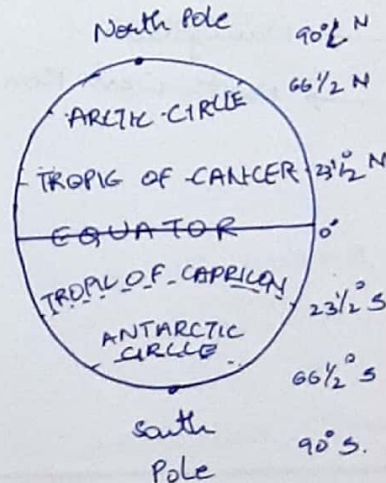 North Pole 90° N
66 1/2 N
ARCTIC CIRCLE
TROPIG OF CANCER 23 1/2° N
EQUATOR 0°
TROPIC OF CAPRICON
23 1/2° S
ANTARCTIC
CIRCLE
66 1/2° S
South
Pole 90° S.